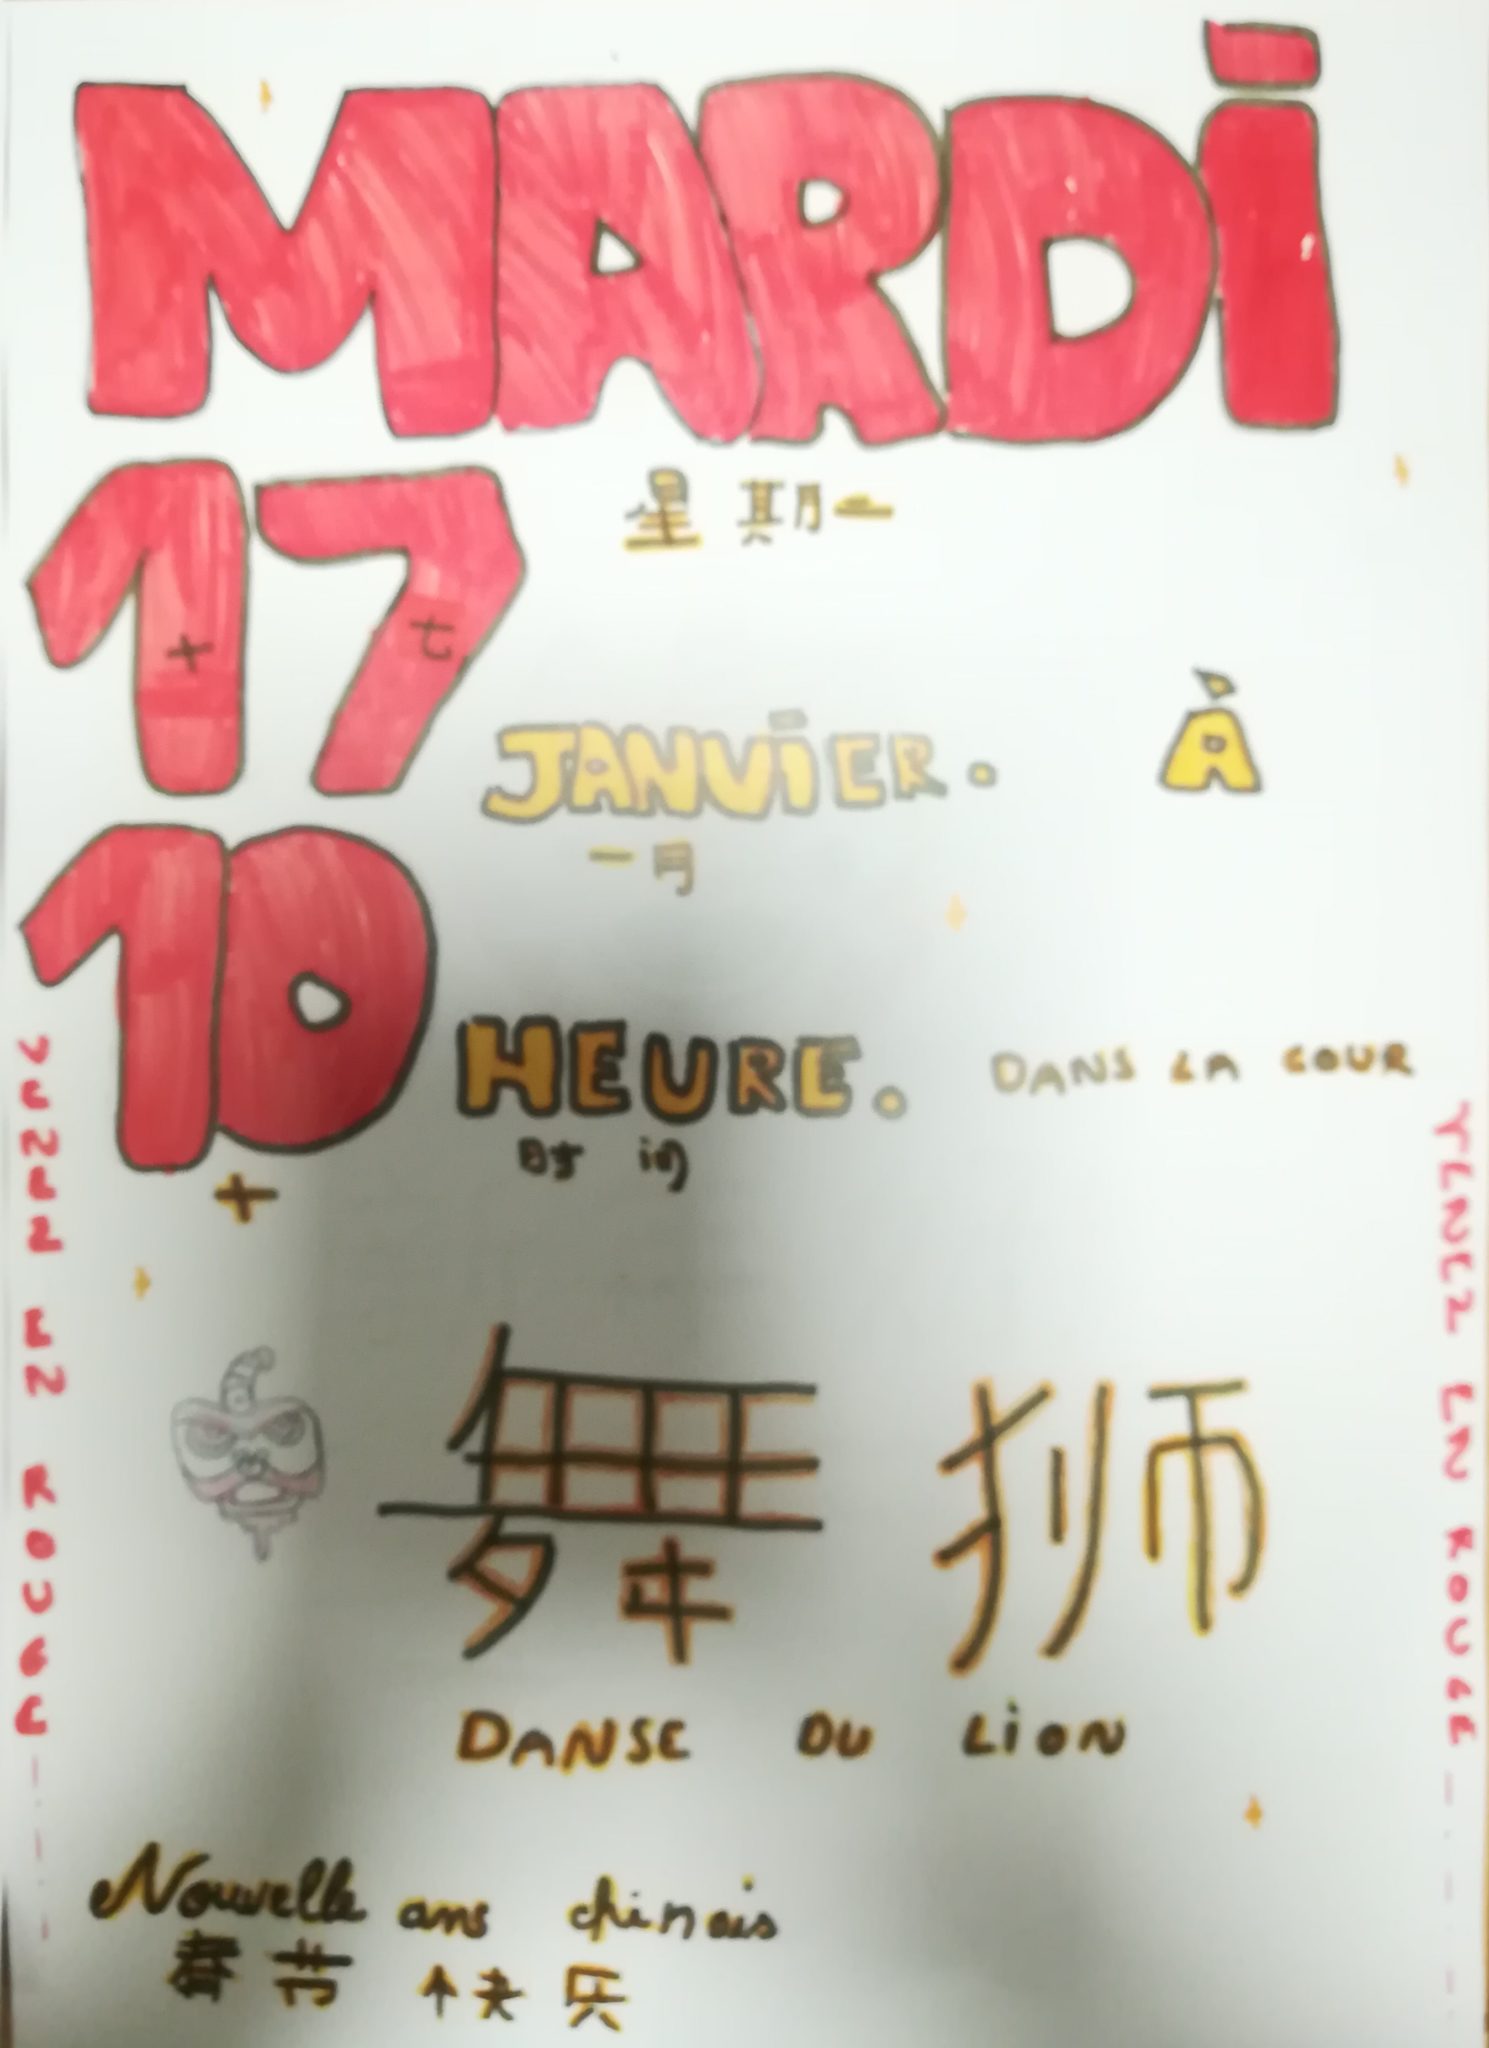 MARDi
星期二
17
十 七
JANViER. À
一月
10 HEURE. DANS LA COUR
时间
十
VENEZ EN ROUGE
VENEZ EN ROUGE
舞狮
DANSE DU LiON
Nouvelle ans chinois
快乐